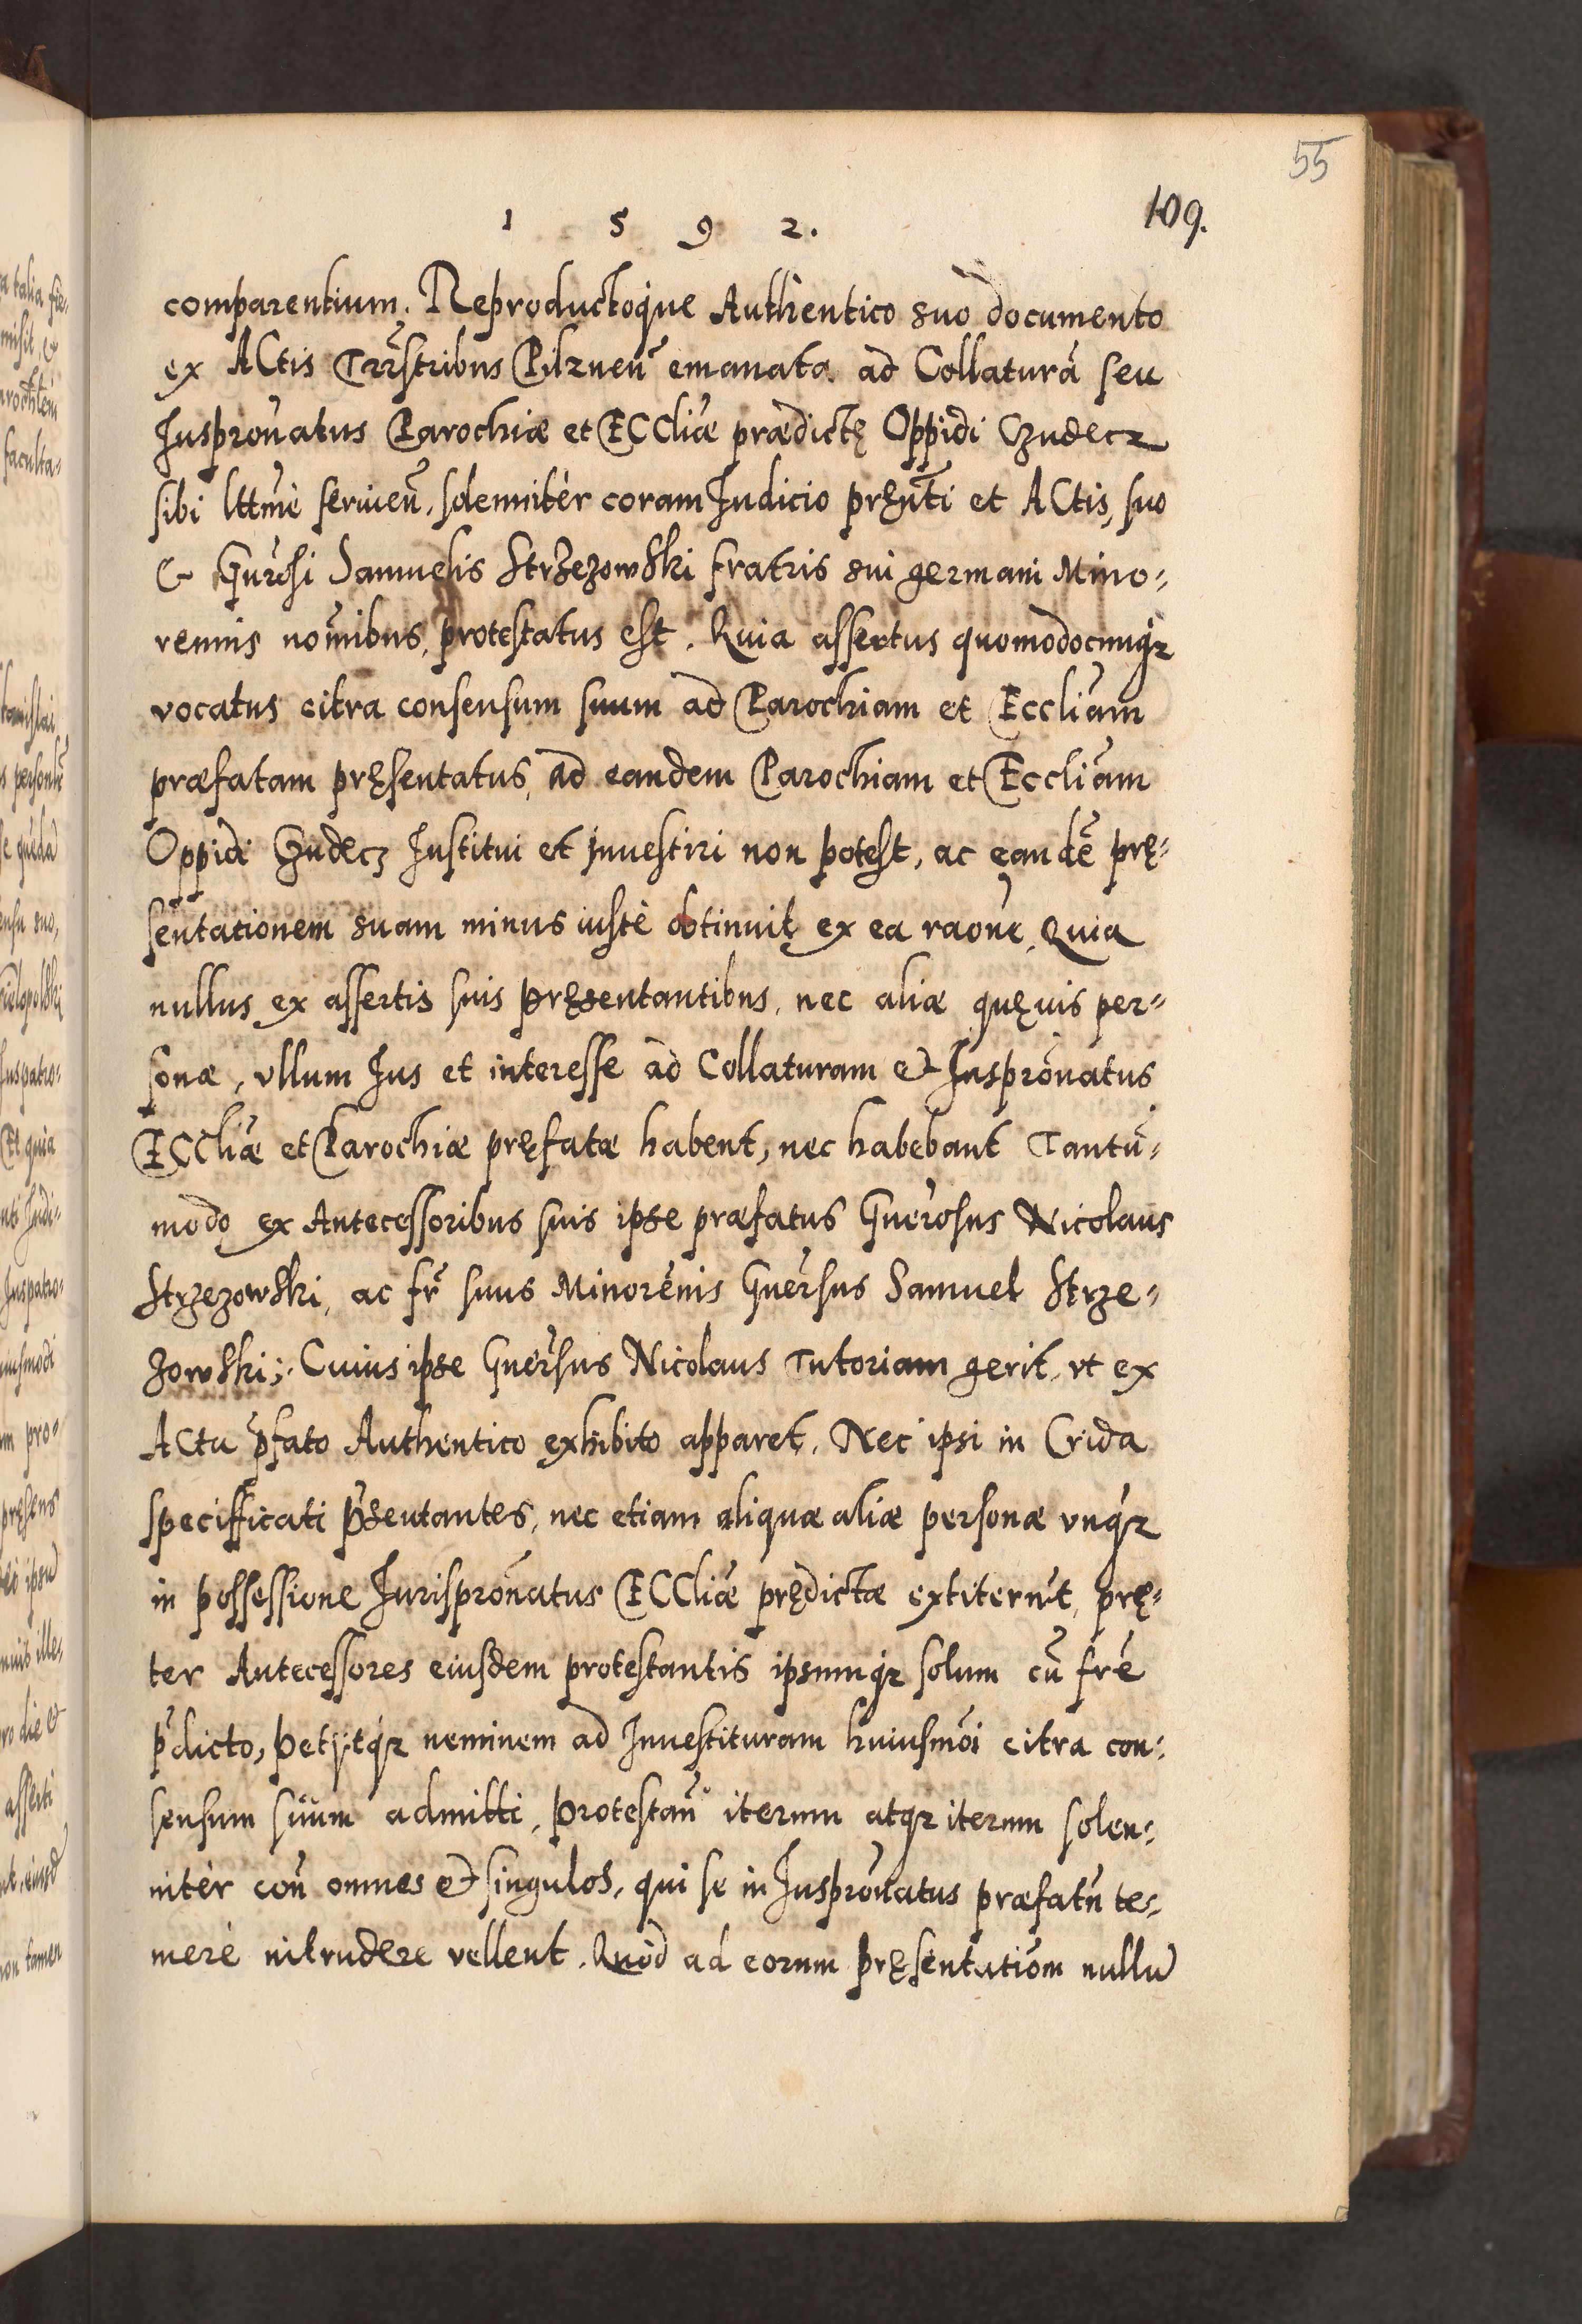 55
1 5 9 2.
109.
comparentium. Reproductoque Authentico suo documento
ex ACtis Trr̃stribus Pilzneñ emanato ad Collaturã seu
Jusprõnatus Parochiæ et ECCliæ prædictę Oppidi Czudecz
sibi lttmè serueñ, solemnitèr coram Judicio pręnti et ACtis, suo
& Gnrosi Samuelis Strzezowski fratris sui germani Mino-
rennis noĩnibus, protestatus est. Quia assertus quomodocunq3
vocatus citra consensum suum ad Parochiam et Eccliam
præfatam pręsentatus, ad eandem Parochiam et Eccliam
Oppidi Czudecz Institui et inuestiri non potest, ac eandẽ prę-
sentationem suam minus iustè obtinuit, ex ea raone, Quia
nullus ex assertis suis pręsentantibus, nec aliæ quęuis per-
sonæ, vllum Jus et interesse ad Collaturam et Jusprõnatus
ECCliæ et Parochiæ pręfatæ habent, nec habebant Tantũ-
modo ex Antecessoribus suis ipse præfatus Gnerosus Nicolaus
Strzezowski, ac fr̃ suus Minorẽnis Gnersus Samuel Strze-
zowski; Cuius ipse Gnersus Nicolaus Tutoriam gerit, vt ex
ACtu p̃fato Authentico exhibito apparet. Nec ipsi in Crida
specifficati p̃sentantes, nec etiam aliquæ aliæ personæ vnq3
in possessione Jurisprõnatus ECCliæ prędictæ extiterũt, prę-
ter Antecessores eiusdem protestantis ipsumq3 solum cũ fr̃e
p̃dicto, petijtq3 neminem ad Inuestituram huiusmõi citra con-
sensum suum admitti, protestañ iterum atq3 iterum solen-
nitèr coñ omnes et singulos, qui se in Jusprõnatus præfatũ te-
merè intrudere vellent. Quòd ad eorum pręsentatiõm nullũ